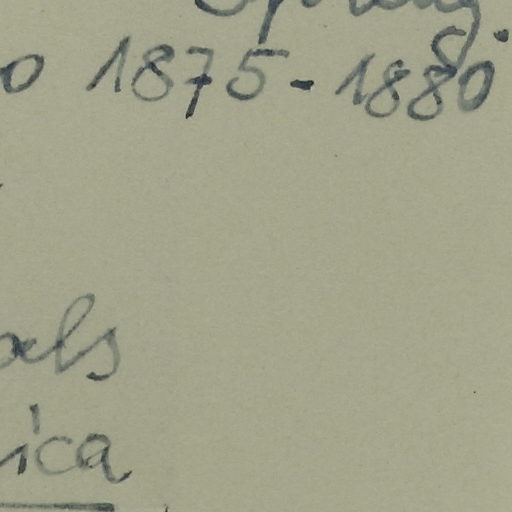 o 1875-1880
als
ica